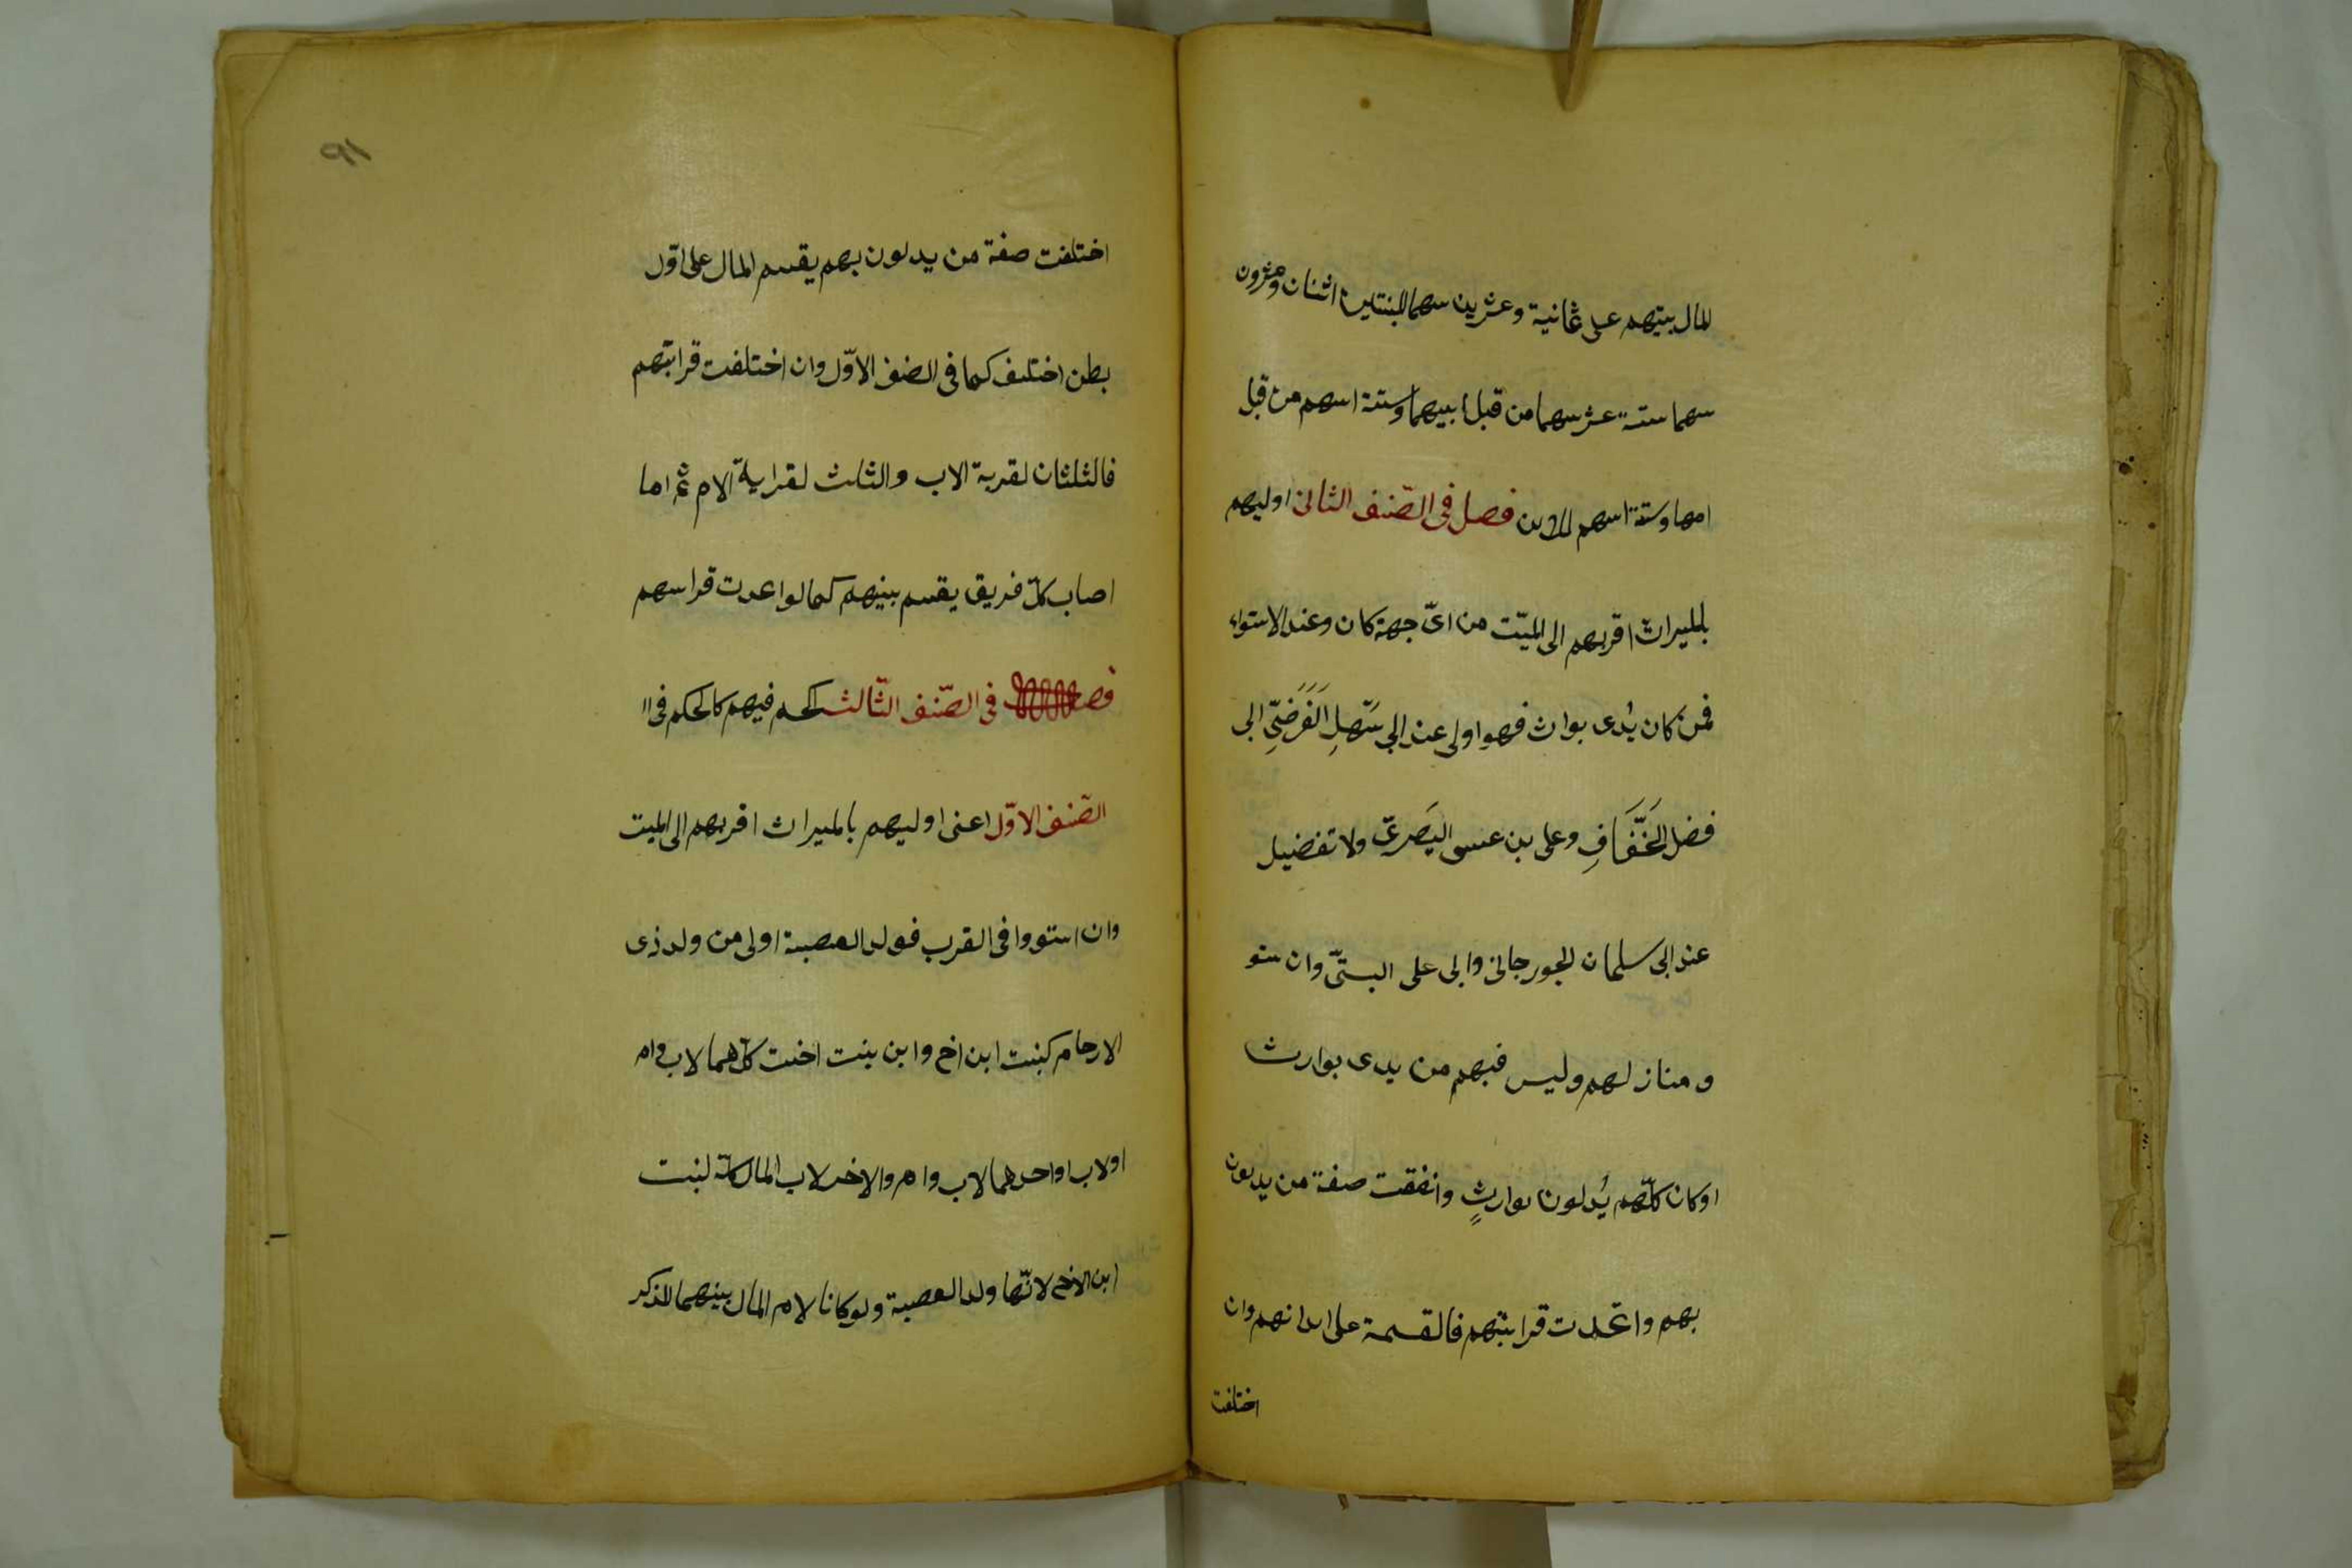 المال بينهم على ثمانية وعشرين سهما للبنتين اثنان وعشرون
سهما ستة عشر سهما من قبل ابيهما وستة اسهم من قبل
امها وستة اسهم للابن فصل فى الصّنف الثانى اوليهم
بالميراث اقربهم الى الميّت من اىّ جهة كان وعند الاستواء
فمن كان يُدى بوارث فهو اولى عند ابى سَهلِ الفَرَضىّ ابى
فضل الخَفَّافِ وعلى بن عيسى البَصَرىّ ولا تفضيل
عند ابى سلمان الجورجانى وابى على البستىّ وان ستو
ومنازلهم وليس فيهم من يدى بوارث
او كان كلّهم يُدلون بوارثٍ واتفقت صفة من يدلون
بهم واتحدت قرابتهم فالقسمة على ابدانهم وان
اختلفت
٩١
اختلفت صفة من يدلون بهم يقسم المال على اوّل
بطن اختلف كما فى الصنف الاوّل وان اختلفت قرابتهم
فالثلثان لقربة الاب والثلث لقرابة الام ثم اما
اصاب كلّ فريق يقسم بينهم كما لو اعدت قراسهم
فصل فى الصّنف الثّالث الحكم فيهم كالحكم فى ا
الصّنف الاوّل اعنى اوليهم بالميراث اقربهم الى الميت
وان استووا فى القرب فولد العصبة اولى من ولد ذى
الارحام كبنت ابن اخ وابن بنت اخت كلاهما لاب وام
او لاب او احدهما لاب وام والاخر لاب المال كلّه لبنت
ابن الاخ لانّها ولد العصبة ولو كانا لام المال بينهما للذكر